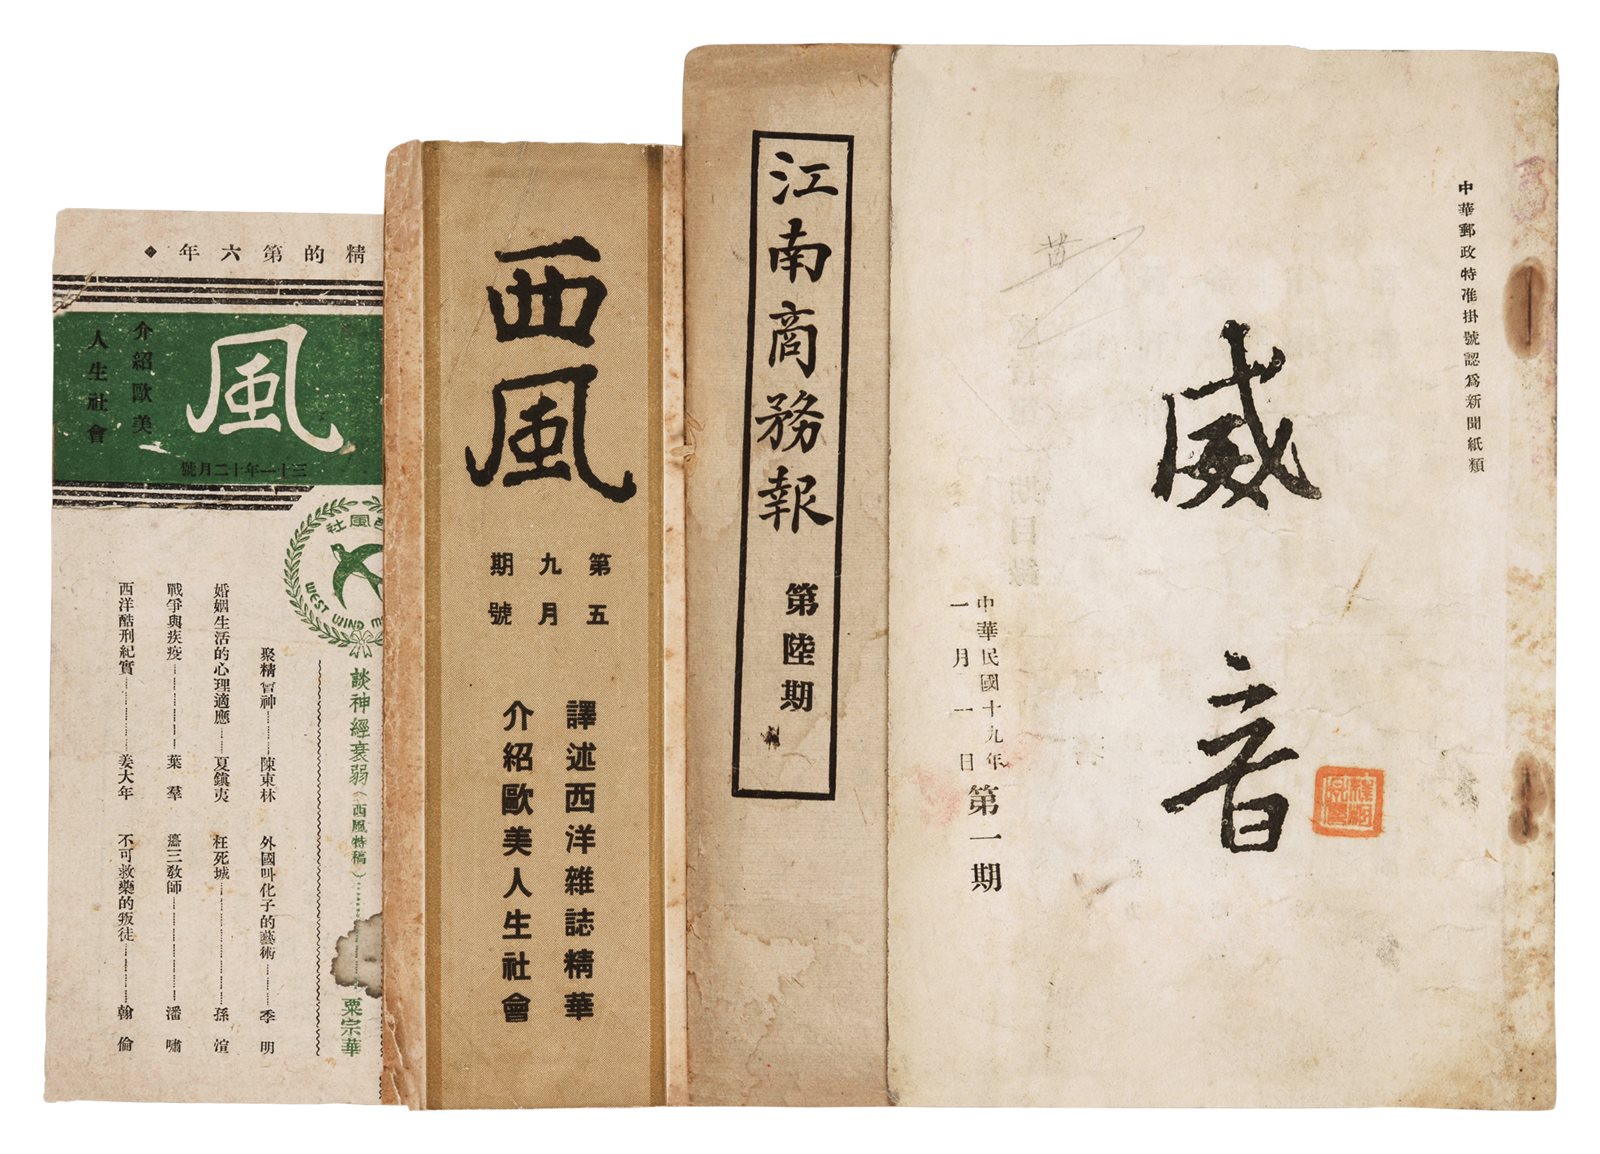 精的第六年
風
介紹歐美
人生社會
三十一年十二月號
風社
WEST WIND M
談神經衰弱(西風特稿)……粟宗華
聚精會神……陳東林
外國叫化子的藝術……季明
婚姻生活的心理適應……夏鎮夷
枉死城……孫渲
戰爭與疾疫……葉羣
癟三敎師……潘嘯
西洋酷刑紀實……姜大年
不可救藥的叛徒……翰倫
西風
第九期
五月號
譯述西洋雜誌精華
介紹歐美人生社會
江南商務報 第陸期
中華郵政特准掛號認爲新聞紙類
威音
中華民國十九年
一月一日
第一期